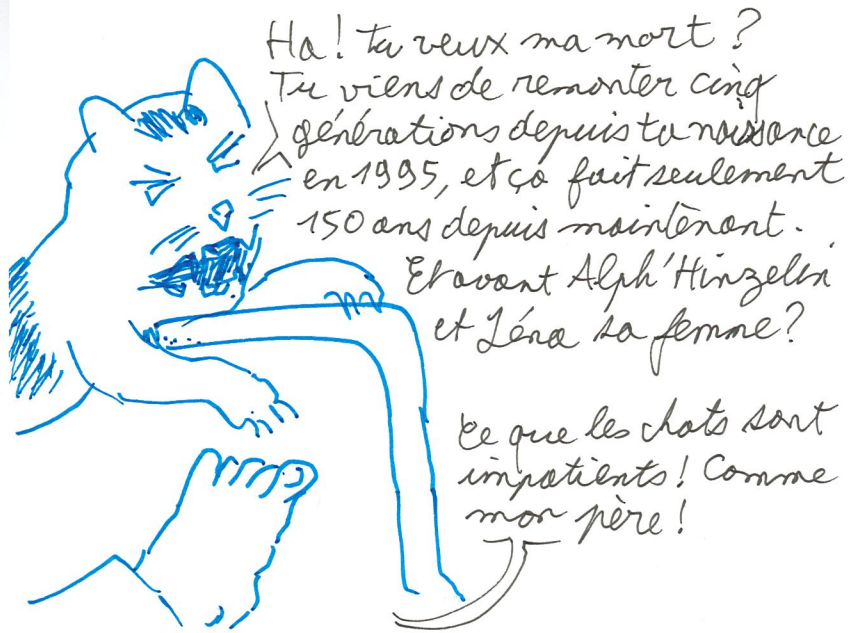 Ha! Tu veux ma mort ?
Tu viens de remonter cinq
générations depuis ta naissance
en 1995, et ça fait seulement
150 ans depuis maintenant.
Et avant Alph'Hinzelin
et Léna sa femme?
Ce que les chats sont
impatients! Comme
mon père!